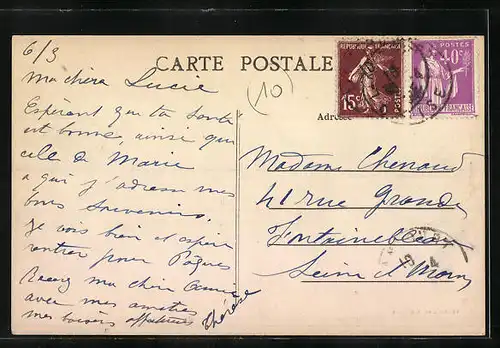 6/3
CARTE POSTALE
(10)
REPUBLIQUE FRANÇAISE
15c
POSTES
POSTES
40c
FRANÇAISE
Adresse
ma chère Lucie
Espérant que ta santé
est bonne, ainsi que
celle de Marie
a qui j'adresse mes
bons souvenirs.
Je vais bien et espère
rentrer pour Pâques
Reçoy ma chère
avec mes amitiés
mes baisers affectueux
Thérèse
Madame Chenaud
41 rue Grande
Fontainebleau
Seine et Marne